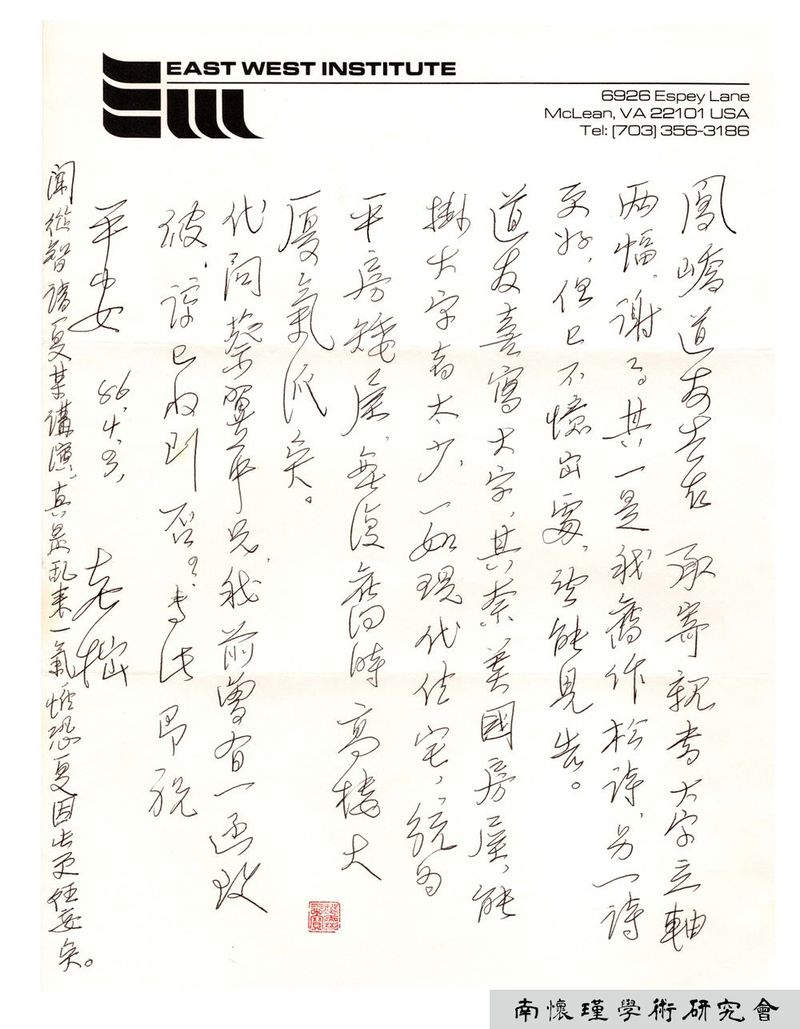 EAST WEST INSTITUTE
6926 Espey Lane
McLean, VA 22101 USA
Tel: (703) 356-3186
鳳嶠道友吉右 承寄親書大字立軸
兩幅,謝了。其一是我舊作松詩,另一詩
更好,但已不憶出處,望能見告。
道友喜寫大字,其奈美國房屋,能
掛大字者太少,一如現代住宅,統為
平房矮屋,無復舊時高樓大
廈氣派矣。
代問蔡翼中兄,我前曾有一函致
彼,諒已收到否?專此 即祝
平安 86.4.3, 老拙
聞從智諸夏某講演,真是乱来一氣,恐夏因此更任妄矣。
南懷瑾學術研究會